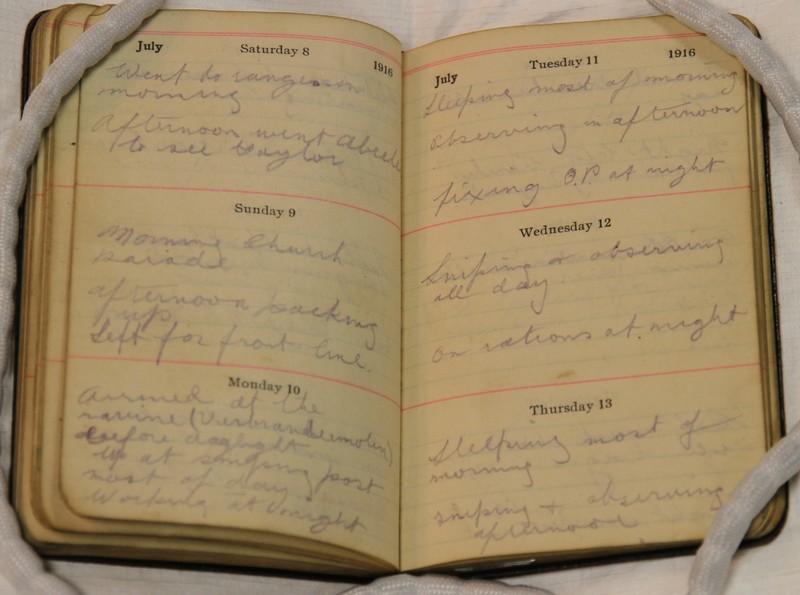 July Saturday 8 1916
Went to ranges in
morning
Afternoon went Abeele
to see Taylor
Sunday 9
Morning Church
parade
afternoon packing
up
Left for front line.
Monday 10
Arrived at the
ravine (Vierbrandenmolen)
before daylight
Up at sniping post
most of day
Working at night
July Tuesday 11 1916
Sleeping most of morning
observing in afternoon
fixing O.P. at night
Wednesday 12
Sniping & observing
all day.
on rations at night
Thursday 13
Sleeping most of
morning
sniping & observing
afternoon